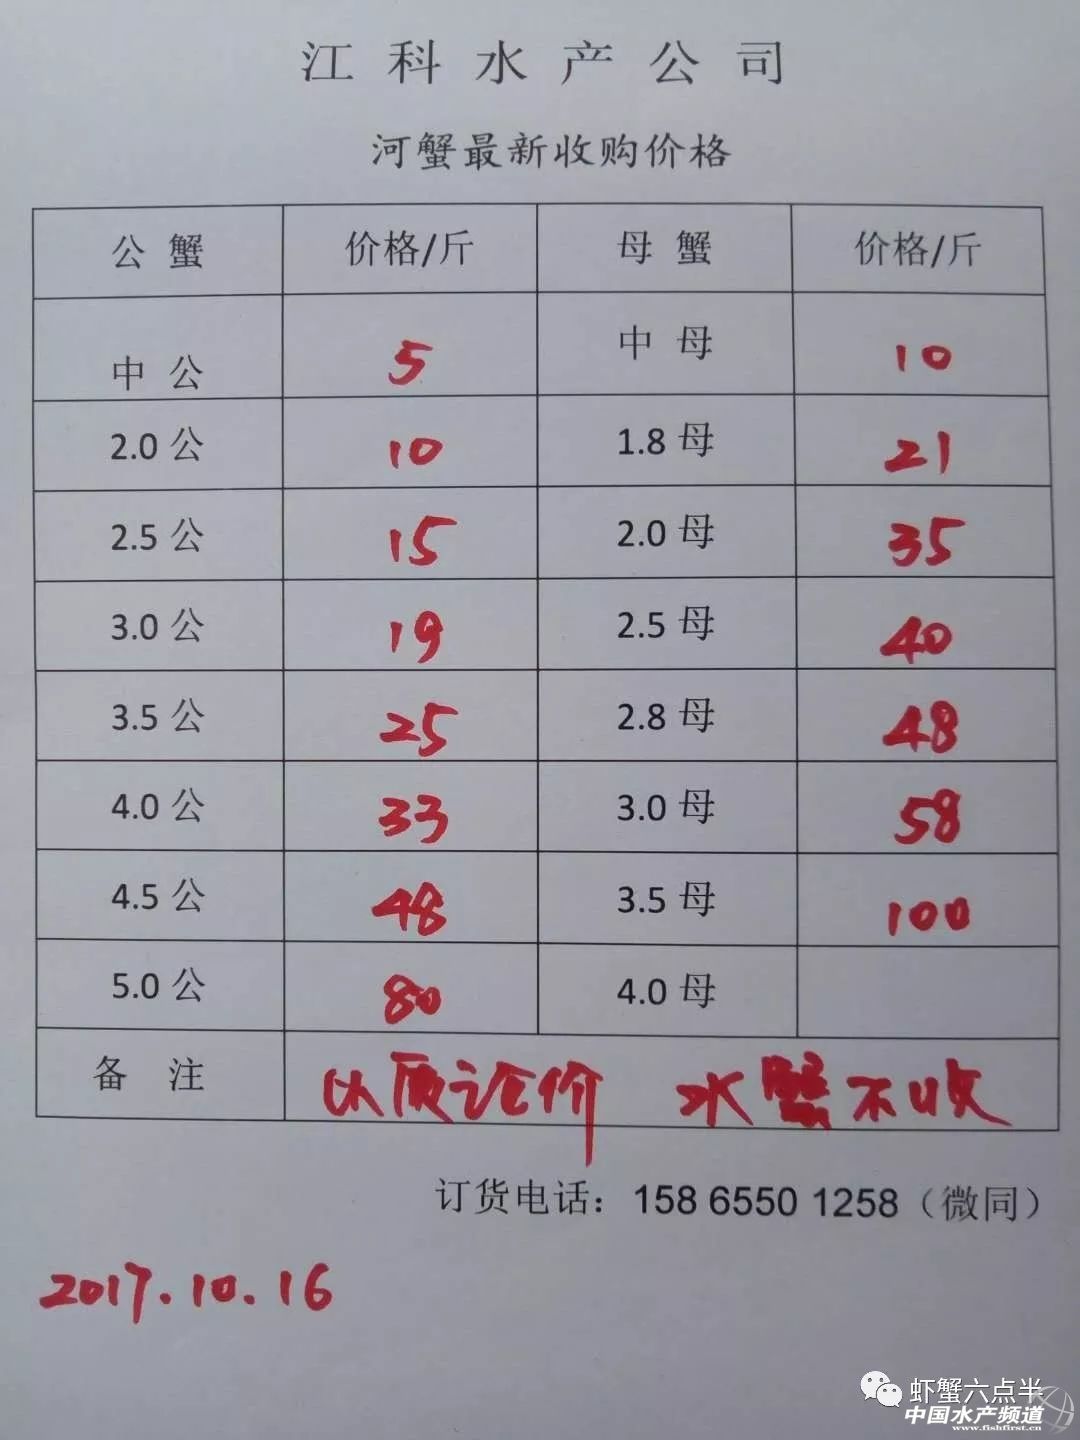 江科水产公司
河蟹最新收购价格
公蟹 价格/斤 母蟹 价格/斤
中公 5 中母 10
2.0公 10 1.8母 21
2.5公 15 2.0母 35
3.0公 19 2.5母 40
3.5公 25 2.8母 48
4.0公 33 3.0母 58
4.5公 48 3.5母 100
5.0公 80 4.0母
备注 以质论价 水蟹不收
订货电话：158 6550 1258（微同）
2017.10.16
虾蟹六点半
中国水产频道
www.fishfirst.cn